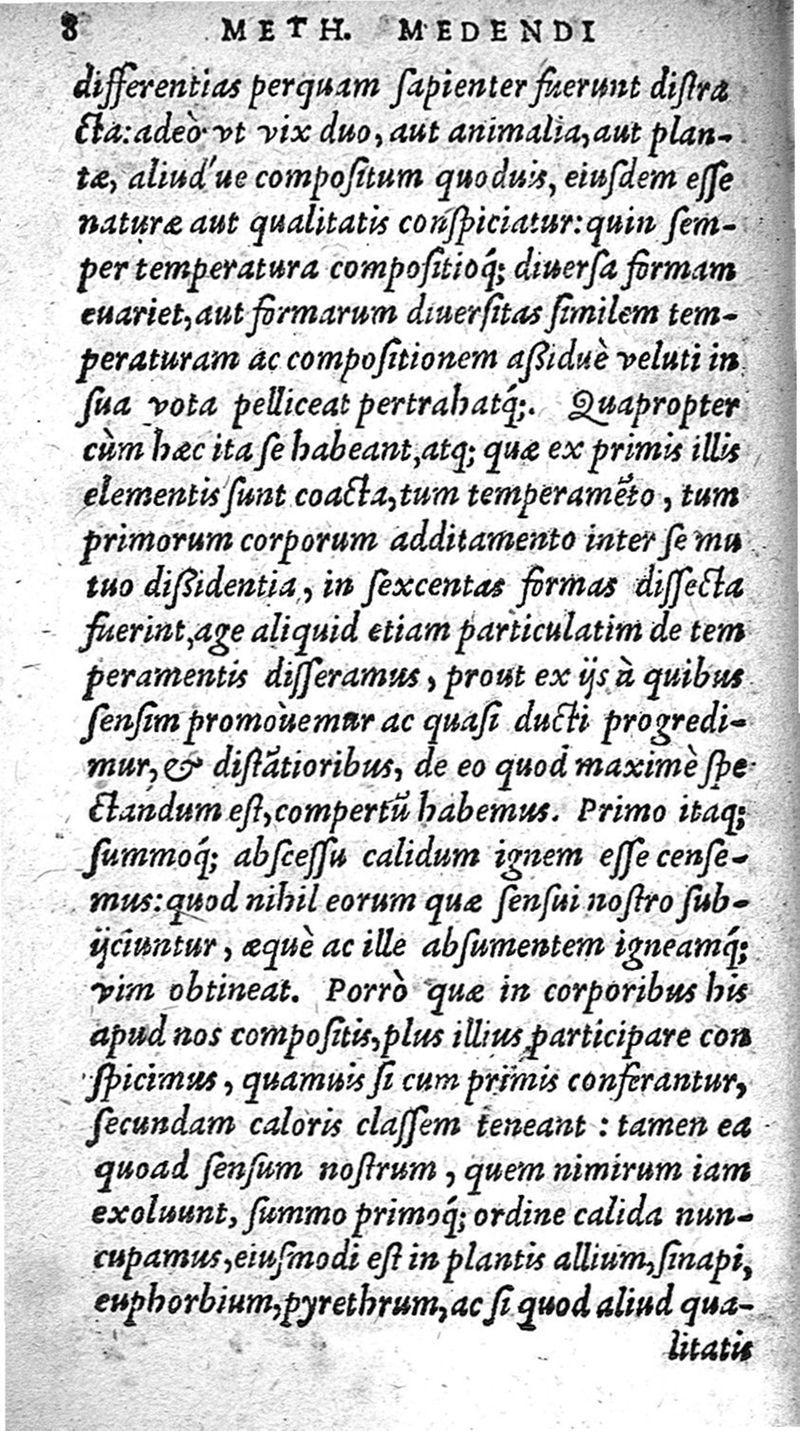 8 METH. MEDENDI
differentias perquam ſapienter fuerunt diſtra
cta: adeò vt vix duo, aut animalia, aut plan-
tæ, aliud'ue compoſitum quoduis, eiuſdem eſſe
naturæ aut qualitatis conſpiciatur: quin ſem-
per temperatura compoſitioq́; diuerſa formam
euariet, aut formarum diuerſitas ſimilem tem-
peraturam ac compoſitionem aßiduè veluti in
ſua vota pelliceat pertrahatq́;. Quapropter
cùm hæc ita ſe habeant, atq; quæ ex primis illis
elementis ſunt coacta, tum temperamẽto, tum
primorum corporum additamento inter ſe mu
tuo dißidentia, in ſexcentas formas diſſecta
fuerint, age aliquid etiam particulatim de tem
peramentis diſſeramus, prout ex ijs à quibus
ſenſim promouemur ac quaſi ducti progredi-
mur, & diſtãtioribus, de eo quod maximè ſpe
ctandum eſt, compertũ habemus. Primo itaq;
ſummoq́; abſceſſu calidum ignem eſſe cenſe-
mus: quod nihil eorum quæ ſenſui noſtro ſub-
ijciuntur, æquè ac ille abſumentem igneamq́;
vim obtineat. Porrò quæ in corporibus his
apud nos compoſitis, plus illius participare con
ſpicimus, quamuis ſi cum primis conferantur,
ſecundam caloris claſſem teneant : tamen ea
quoad ſenſum noſtrum, quem nimirum iam
exoluunt, ſummo primoq́; ordine calida nun-
cupamus, eiuſmodi eſt in plantis allium, ſinapi,
euphorbium, pyrethrum, ac ſi quod aliud qua-
litatis